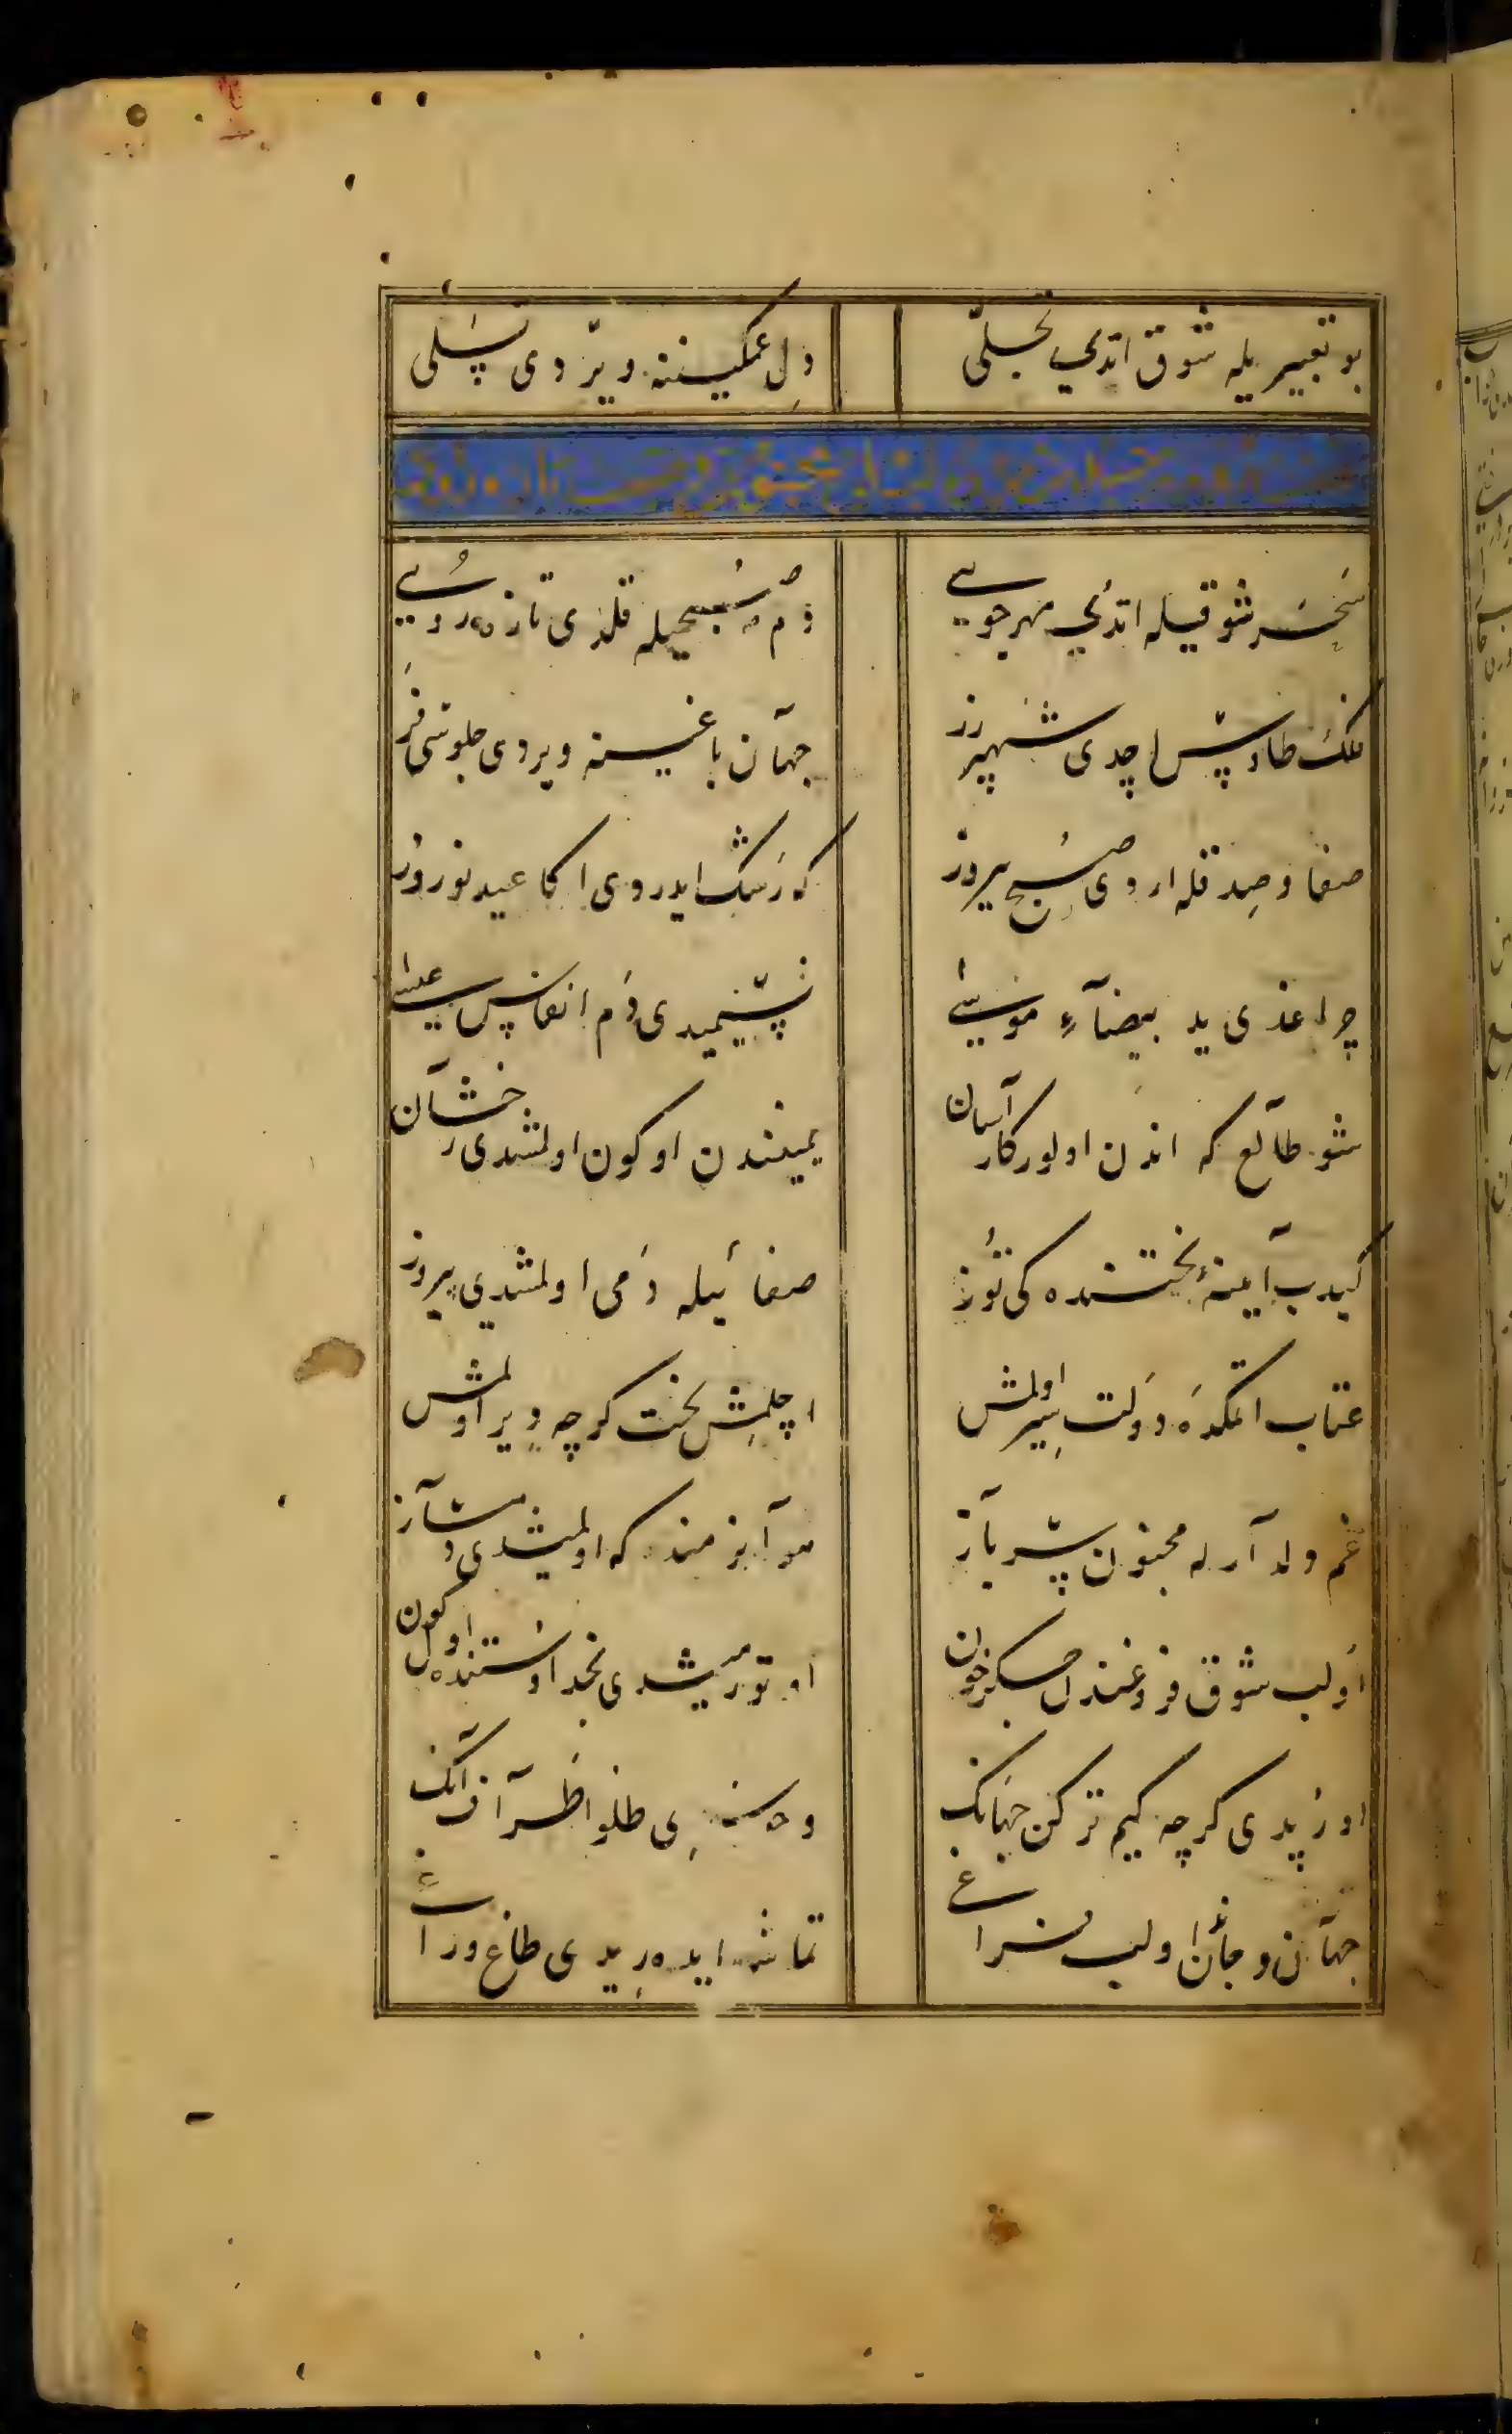 بو تعبیر یله شوق اتدی تجلّی دل غمگیننه ویردی تسلی
سحر شوقیله اتدی مهرجویی دم صبحیله قلدی تازه‌رویی
فلک طاوسی اچدی شهپر زر جهان باغینه ویردی جلوسی فر
صفا و صدقله اردی صبح پیروز که رشک ایدردی اکا عید نوروز
چراغدی ید بیضآء موسی نسیمیدی دم انفاس عیسی
شو طالع که اندن اولور کار آسان یمینندن او کون اولمشدی رخشان
کیدب آیینهٔ بختنده کی توز صفائیله دمی اولمشدی پیروز
عتاب اتمکده دولت سیر اولمش اچلمش بخت کرچه دیر اولمش
غم دلدآرله مجنون سرباز سرآبزمنده که اولمشدی دمساز
اولب شوق فروغندل جکرخون اوتورمشدی نجد اوستنده اول کون
اوزیدی کرچه کیم ترکن جهانک وحسنه‌ی طلو اطرآفی آنک
جهان و جاندن اولب فراغی تماشا ایده‌ریدی طاغ و راغی